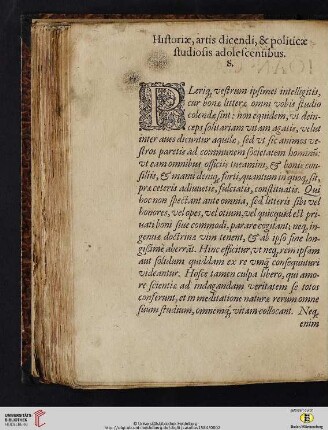 Historiæ, artis dicendi, & politicæ
studiosis adolescentibus.
S.
PLeriq; vestrum ipsimet intelligitis,
cur bonæ litteræ omni vobis studio
colendæ sint: non equidem, vt dein-
ceps solitariam vitam agatis, velut
inter aues dicuntur aquilæ, sed vt sic animos ve-
stros paretis ad communem societatem hominũ:
vt eam omnibus officiis tueamini, & bonis con-
siliis, & manu deniq; forti, quantum in quoq; sit,
præ ceteris adiuuetis, fulciatis, constituatis. Qui
hoc non spectant ante omnia, sed litteris sibi vel
honores, vel opes, vel otium, vel quicquid est pri-
uati boni siue commodi, parare cogitant: neq; in-
genuæ doctrinæ vim tenent, & ab ipso fine lon-
gissime aberrãt. Hinc efficitur, vt neq; rem ipsam
aut solidum quiddam ex re vmq; consequuturi
videantur. Hosce tamen culpa libero, qui amo-
re scientiæ ad indagandam veritatem se totos
conferunt, et in meditatione naturæ rerum omne
suum studium, omnemq; vitam collocant. Neq;
enim
UNIVERSITÄTS-
BIBLIOTHEK
HEIDELBERG
© Universitätsbibliothek Heidelberg